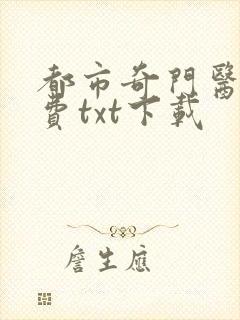 都市奇門醫
費txt下載
詹生應